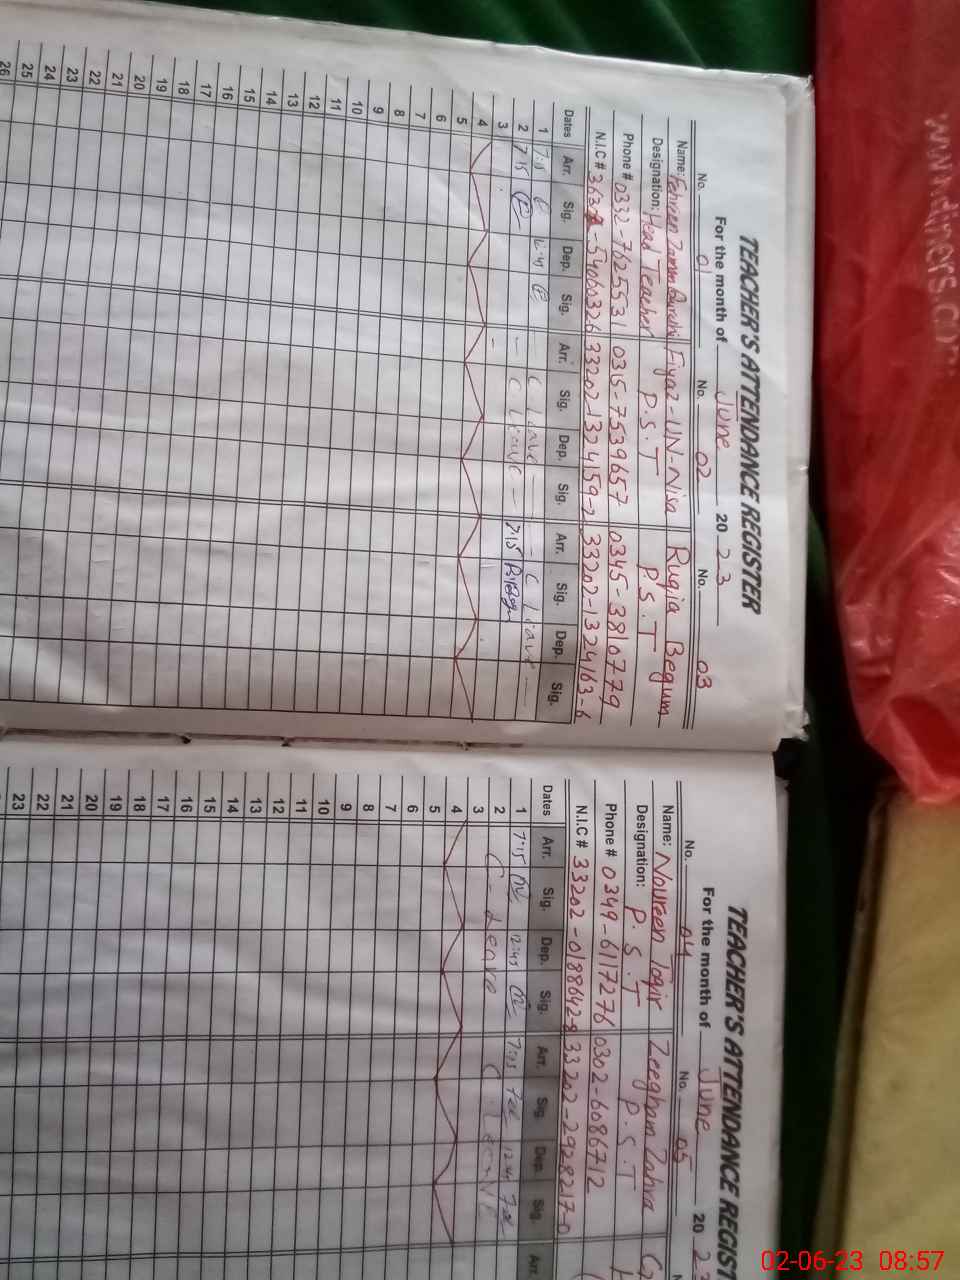 TEACHER'S ATTENDANCE REGISTER
For the month of June 20 23
No. 01 No. 02 No. 03
Name: Fiyaz-UN-Nisa Ruqia Begum
Designation: Head Teacher P.S.T P.S.T
Phone # 0332-7625531 0315-7539657 0345-3810779
N.I.C # 33202-1324159-2 33202-1324163-6
Dates Arr. Sig. Dep. Sig. Arr. Sig. Dep. Sig. Arr. Sig. Dep. Sig.
1 7:15 12:45 C Leave C Leave
2 7:15 C Leave 7:15
3
4
5
6
7
8
9
10
11
12
13
14
15
16
17
18
19
20
21
22
23
24
25
26
TEACHER'S ATTENDANCE REGIST
For the month of June 20 23
No. 04 No. 05
Name: Noureen Zeegham Zahra
Designation: P.S.T P.S.T
Phone # 0349-6117276 0302-6086712
N.I.C # 33202-0188642-8 33202-2928217-0
Dates Arr. Sig. Dep. Sig. Arr. Sig. Dep. Sig. Arr.
1 7:15 12:45 7:15 12:45
2 C-Leave C Leave
3
4
5
6
7
8
9
10
11
12
13
14
15
16
17
18
19
20
21
22
23
www.diners.co
02-06-23 08:57